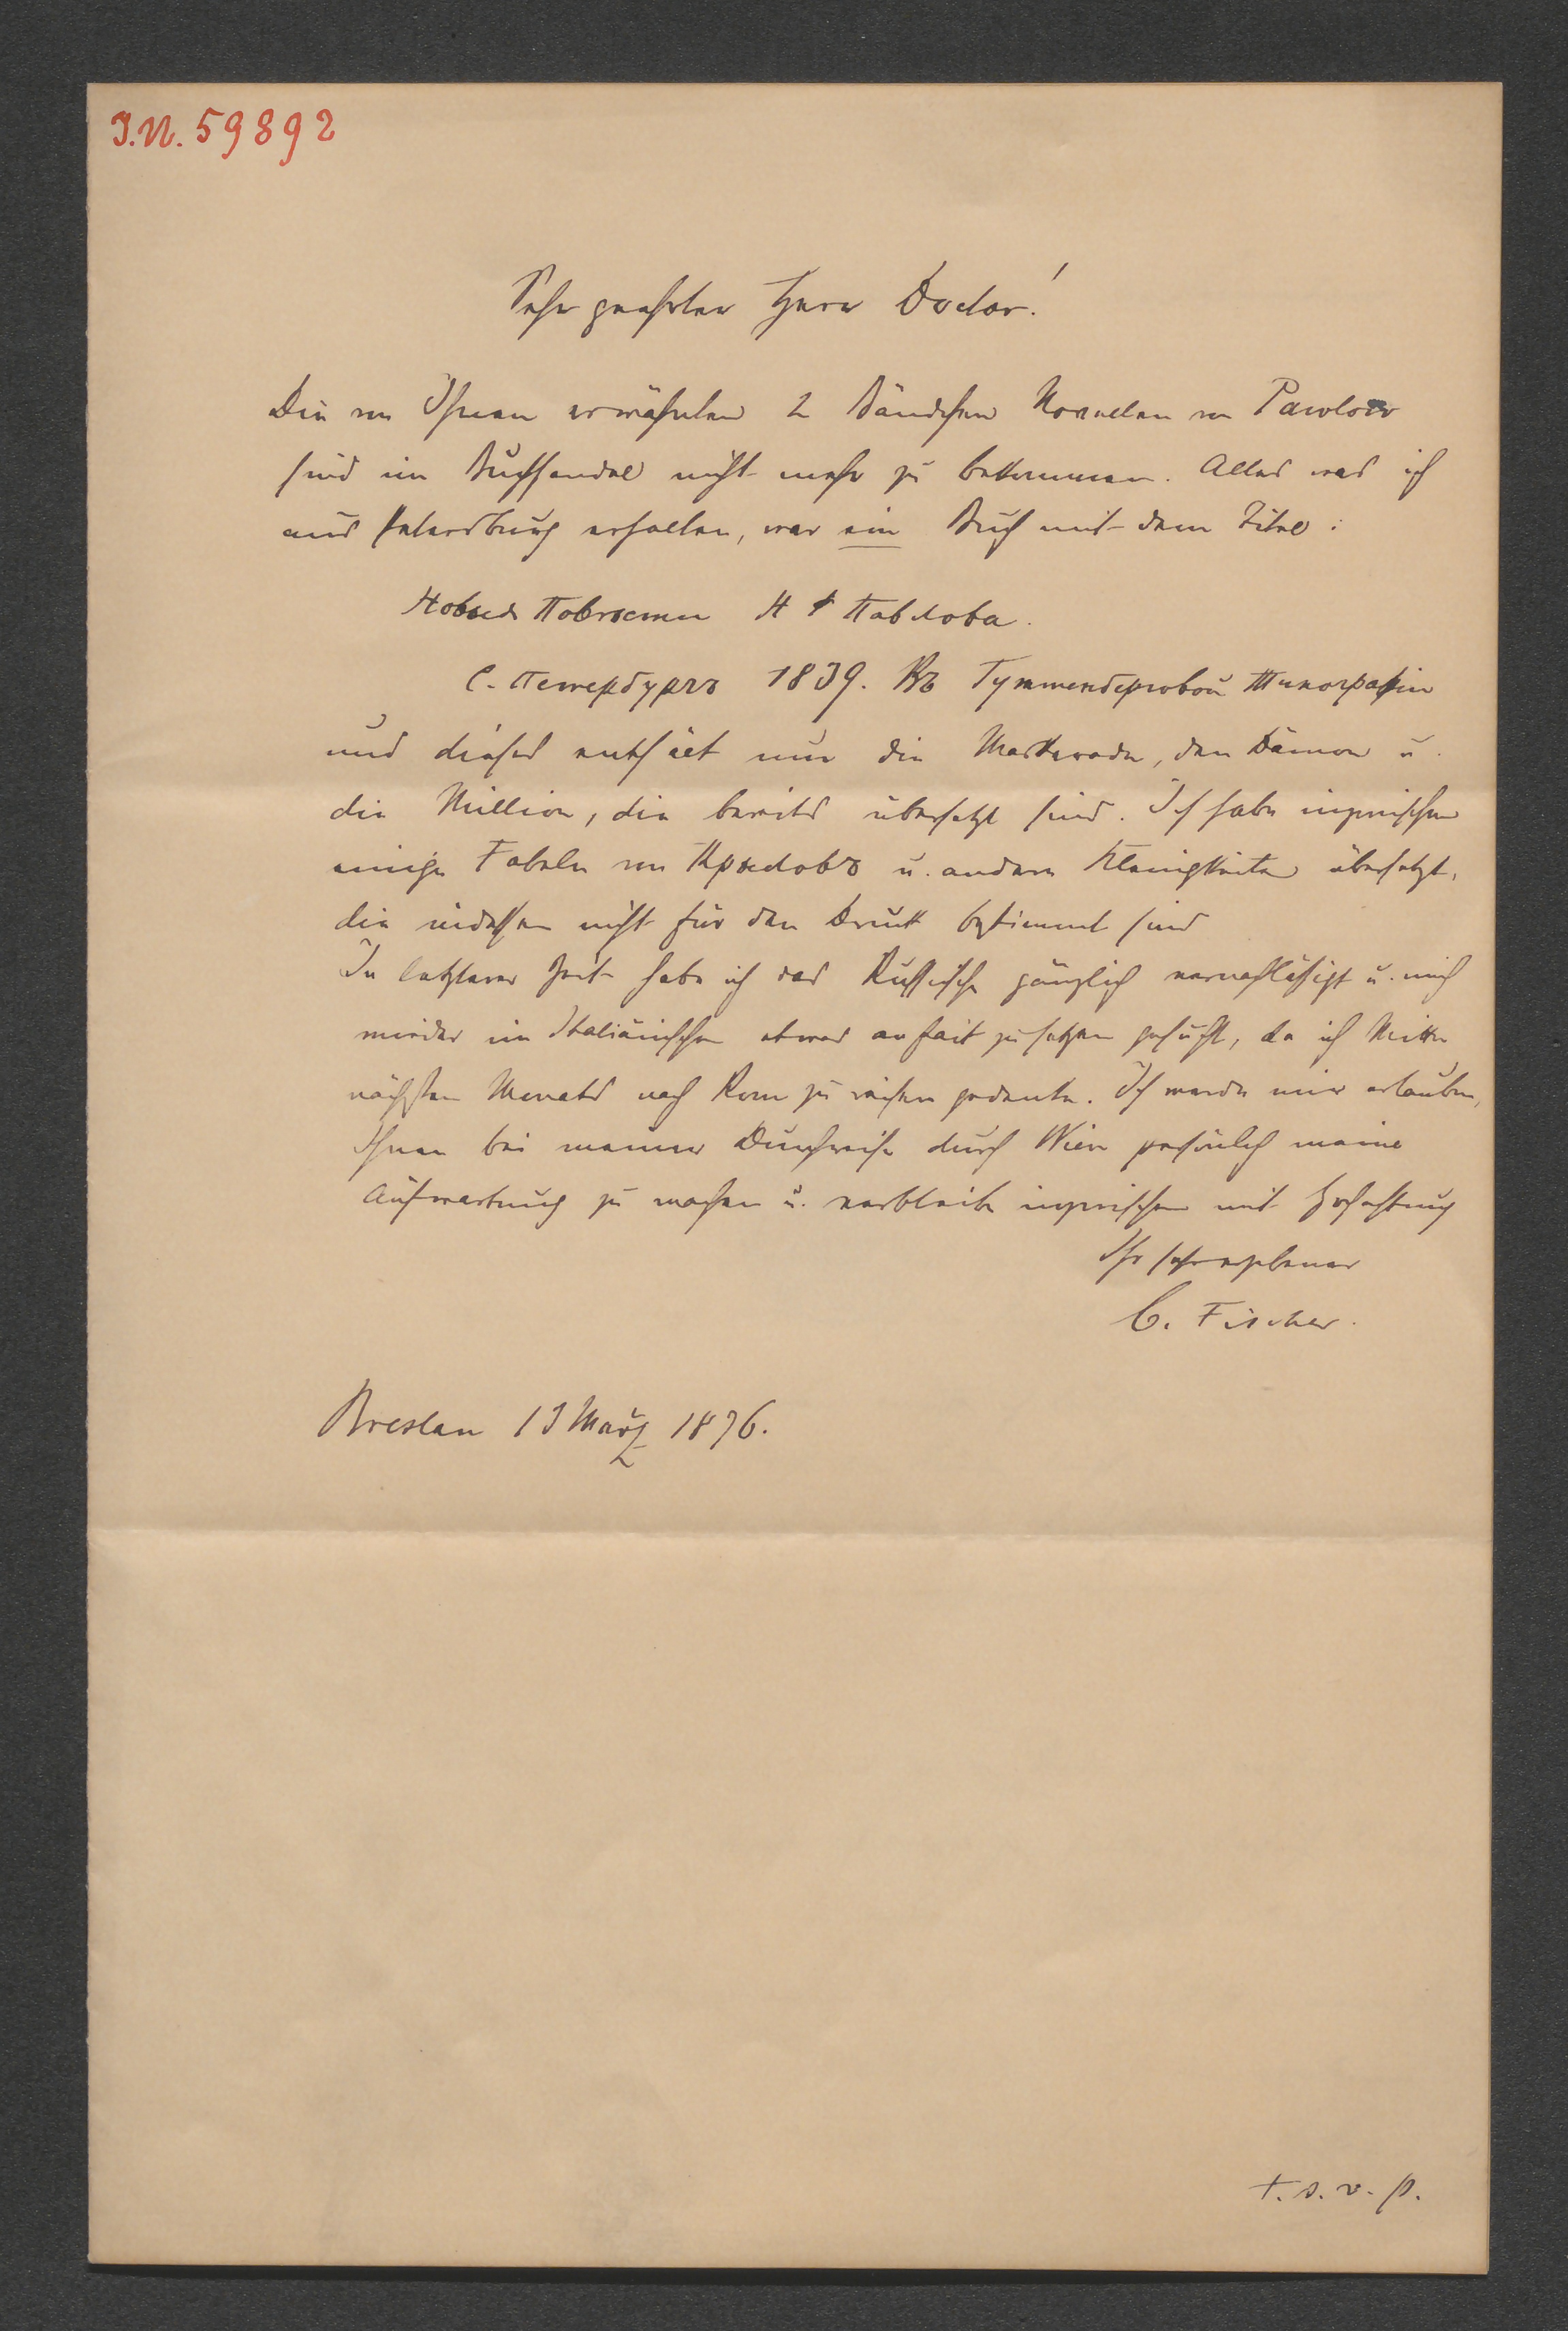 I.N. 59892
Sehr geehrter Herr Doctor!
Die von Ihnen erwähnten 2 Bändchen Novellen von Pawlow
sind im Buchhandel nicht mehr zu bekommen. Alles was ich
aus Petersburg erhalten, war ein Buch mit dem Titel:
Новыя Повѣсти Н Ф Павлова.
С. Петербургъ 1839. Въ Гуттенберговой Типографіи
und dieses enthält nur die Maskerade, den Dämon u.
die Million, die bereits übersetzt sind. Ich habe inzwischen
einige Fabeln von Крыловъ u. andere Kleinigkeiten übersetzt,
die indessen nicht für den Druck bestimmt sind
In letzterer Zeit habe ich das Russische gänzlich vernachlässigt u. mich
wieder im Italiänischen etwas au fait zu setzen gesucht, da ich Mitte
nächsten Monats nach Rom zu reisen gedenke. Ich werde mir erlauben,
Ihnen bei meiner Durchreise durch Wien persönlich meine
Aufwartung zu machen u. verbleibe inzwischen mit Hochachtung
Ihr sehr ergebener
C. Fischer.
Breslau 13 März 1876.
t. s. v. p.